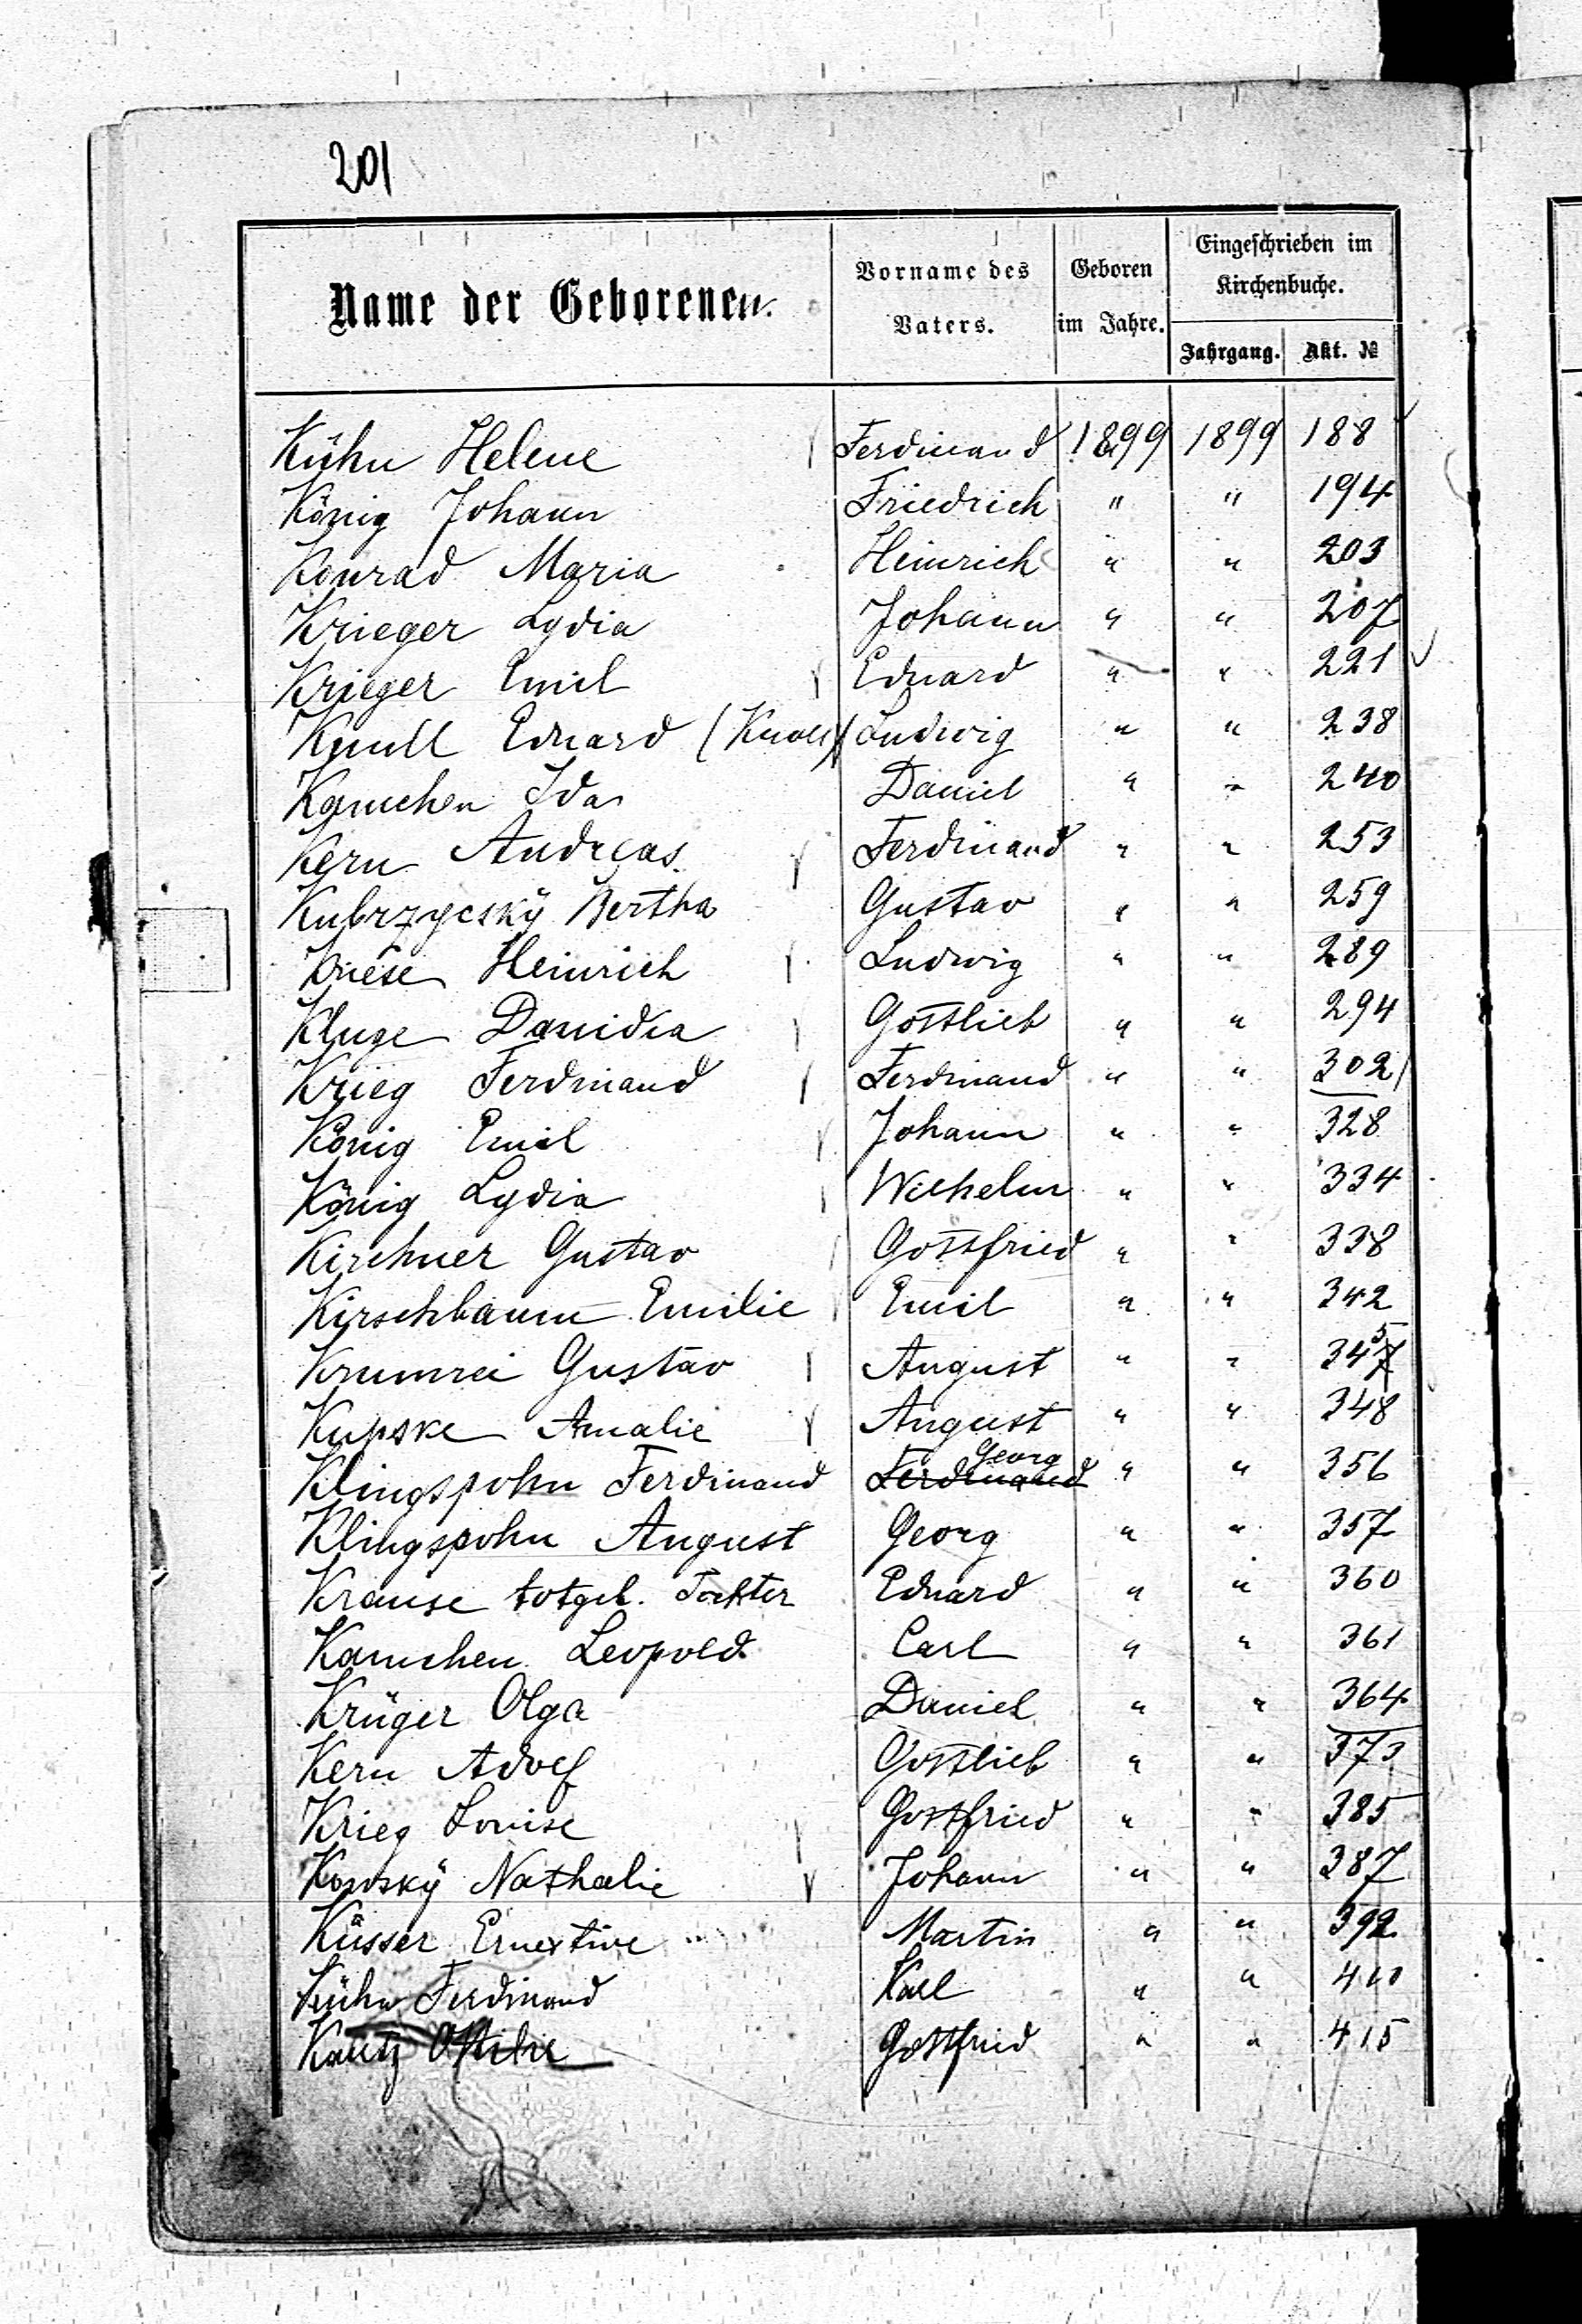 201
Name der Geborenen. Vorname des Vaters. Geboren im Jahre. Eingeschrieben im Kirchenbuche. Jahrgang. Akt. №
Kühn Helene Ferdinand 1899 1899 188
König Johann Friedrich " " 194
Konrad Maria Heinrich " " 203
Krieger Lydia Johann " " 207
Krieger Emil Eduard " " 221
Knull Eduard (Knoll) Ludwig " " 238
Kamchen Ida Daniel " " 240
Kern Andreas Ferdinand " " 253
Kubrzycský Bertha Gustav " " 259
Kriese Heinrich Ludwig " " 289
Kluge Danidia Gottlieb " " 294
Krieg Ferdinand Ferdinand " " 302
König Emil Johann " " 328
König Lydia Wilhelm " " 334
Kirchner Gustav Gottfried " " 338
Kirschbaum Emilie Emil " " 342
Krumrei Gustav August " " 345
Kupske Amalie August " " 348
Klingspohn Ferdinand Ferdinand Georg " " 356
Klingspohn August Georg " " 357
Krause totgeb. Tochter Eduard " " 360
Kamchen Leopold Carl " " 361
Krüger Olga Daniel " " 364
Kern Adolf Gottlieb " " 373
Krieg Louise Gottfried " " 385
Konský Nathalie Johann " " 387
Küsser Ernestine Martin " " 392
Kühn Ferdinand Karl " " 410
Kautz Ottilie Gottfried " " 415